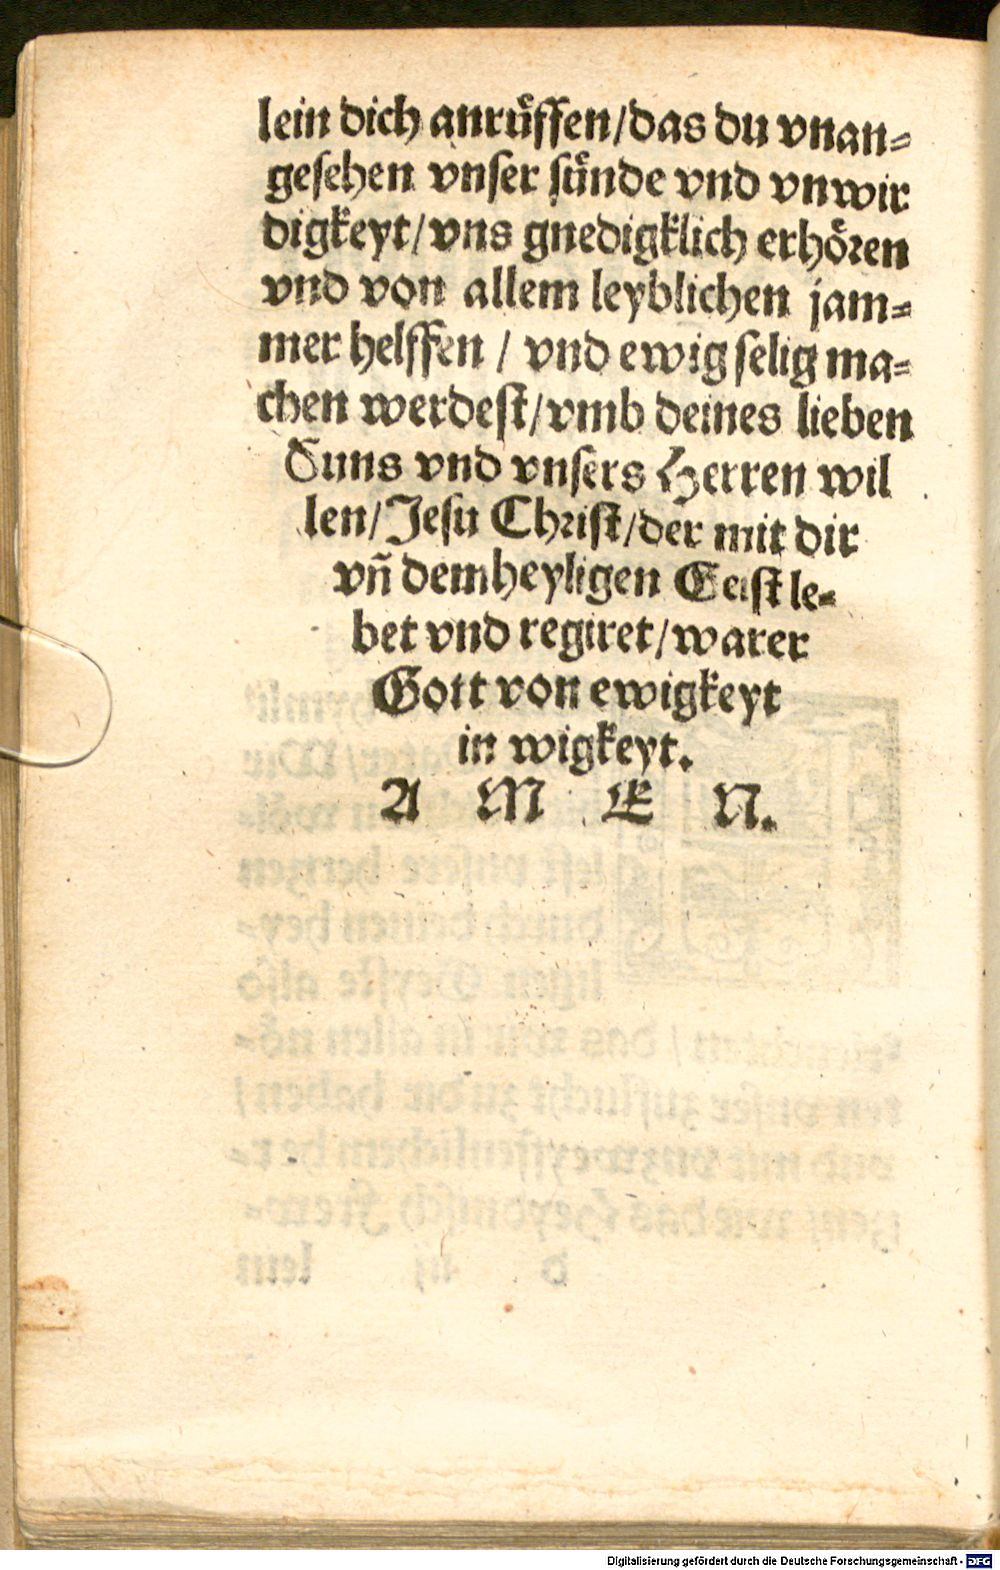 lein dich anrůffen/das du vnan⸗
gesehen vnser sünde vnd vnwir
digkeyt/vns gnedigklich erhören
vnd von allem leyblichen jam⸗
mer helffen / vnd ewig selig ma⸗
chen werdest/vmb deines lieben
Suns vnd vnsers Herren wil
len/Jesu Christ/der mit dir
vñ dem heyligen Geist le⸗
bet vnd regiret/warer
Gott von ewigkeyt
in wigkeyt.
A M E N.
Digitalisierung gefördert durch die Deutsche Forschungsgemeinschaft - DFG